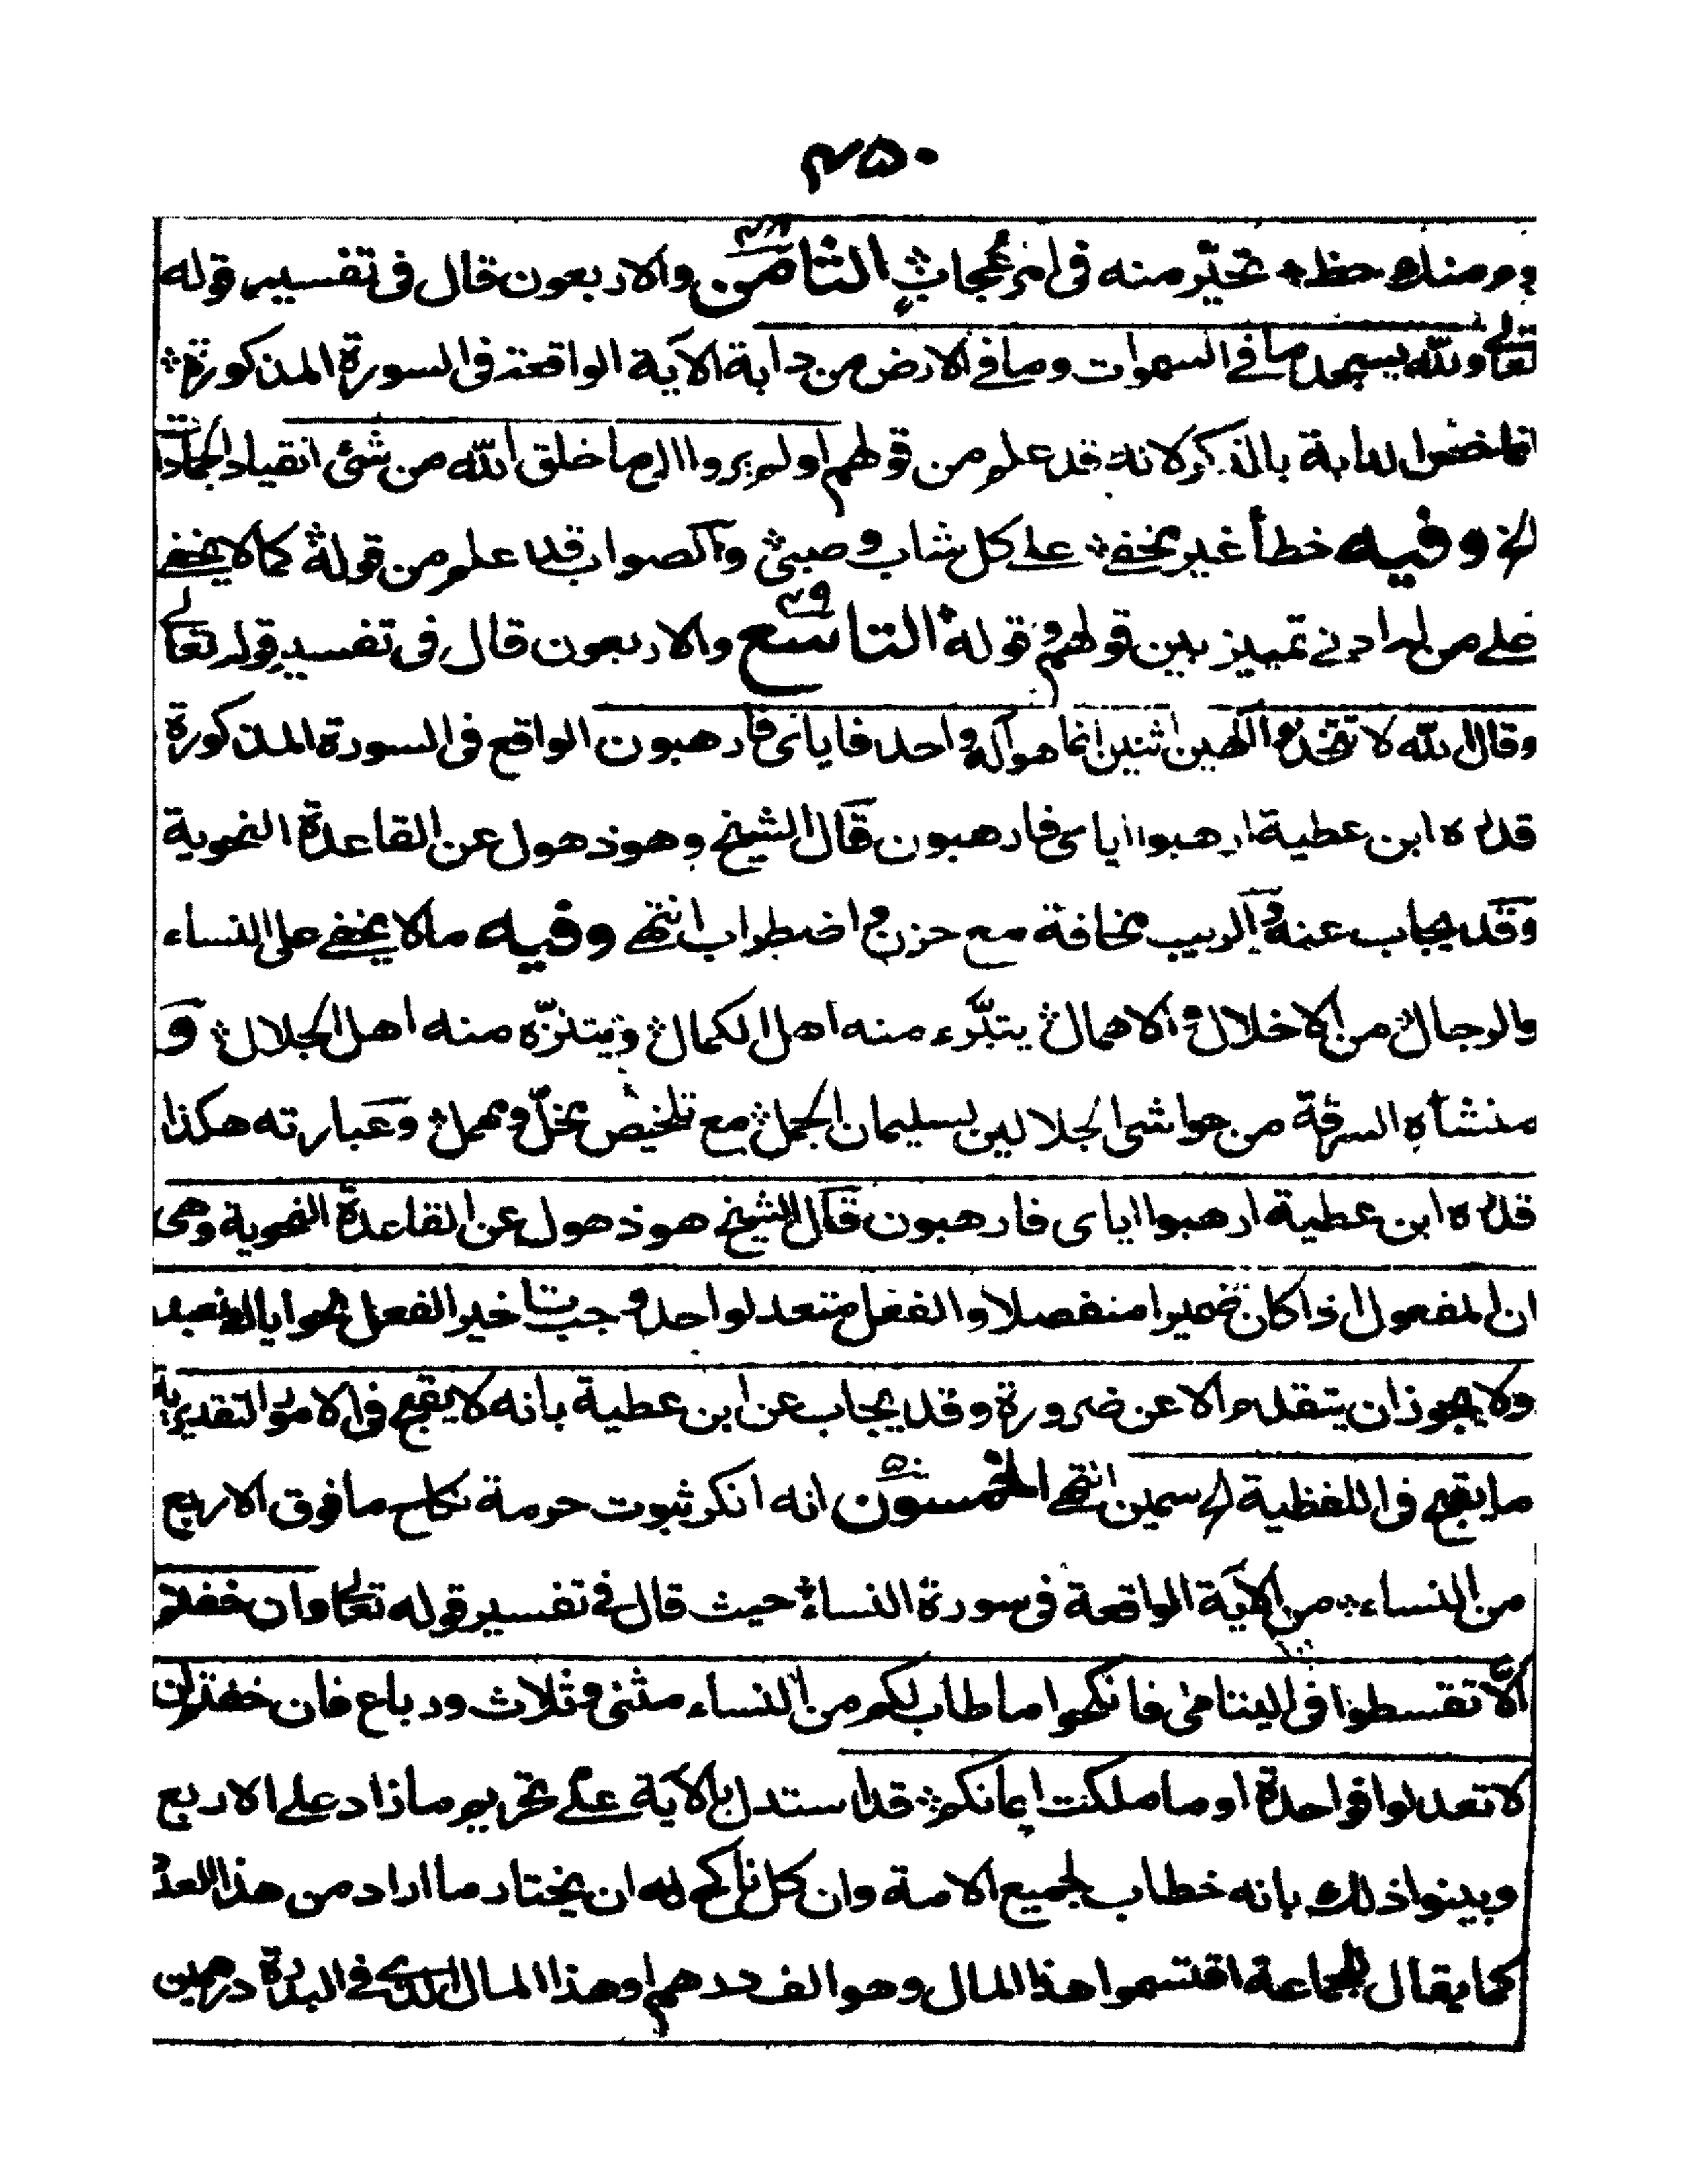 ۴۵۰
حظ تحيّر منه فى امر عجاب الثامن ۴۸ والاربعون قال فى تفسير قوله
تعالى ولله يسجد ما في السموات وما في الارض من دابة الآية الواقعة فى السورة المذكورة
انما خص الدابة بالذكر لانه قد علم من قولهم اولم يروا الى ما خلق الله من شئ انقياد الجمادات
الخ وفيه خطأ غير مخفى على كل شاب وصبىّ والصواب قد علم من قوله كما لا يخفى
على من له ادنى تمييز بين قولهم وقوله التاسع ۴۹ والاربعون قال فى تفسير قوله تعالى
وقال الله لا تتخذوا الهين اثنين انما هو آله واحد فاياى فارهبون الواقع فى السورة المذكورة
قدره ابن عطية ارهبوا اياى فارهبون قال الشيخ وهو ذهول عن القاعدة النحوية
وقد يجاب عنه والرهب مخافة مع حزن واضطراب انتهى وفيه ما لا يخفى على النساء
والرجال من الاخلال والاهمال يتبرّء منه اهل الكمال ويتنزّه منه اهل الجلال و
منشأه السرقة من حواشى الجلالين لسليمان الجمل مع تلخيص مخلّ ومهمل وعبارته هكذا
قدره ابن عطية ارهبوا اياى فارهبون قال الشيخ هو ذهول عن القاعدة النحوية وهى
ان المفعول اذا كان ضميرا منفصلا والفعل متعد لواحد وجب تاخير الفعل نحو اياك نعبد
ولا يجوز ان يتقدم الا عن ضرورة وقد يجاب عن ابن عطية بانه لا يقبح فى الامور التقديرية
ما يقبح فى اللفظية اه سمين انتهى الخمسون ۵۰ انه انكر ثبوت حرمة نكاح ما فوق الاربع
من النساء من الآية الواقعة فى سورة النساء حيث قال فى تفسير قوله تعالى وان خفتم
الّا تقسطوا فى اليتامى فانكحوا ما طاب لكم من النساء مثنى وثلاث ورباع فان خفتم ان
لا تعدلوا فواحدة او ما ملكت ايمانكم قد استدل بالآية على تحريم ما زاد على الاربع
وبينوا ذلك بانه خطاب لجميع الامة وان كل ناكح له ان يختار ما اراد من هذا العدد
كما يقال للجماعة اقتسموا هذا المال وهو الف درهم او هذا المال الذى فى البدرة درهمين